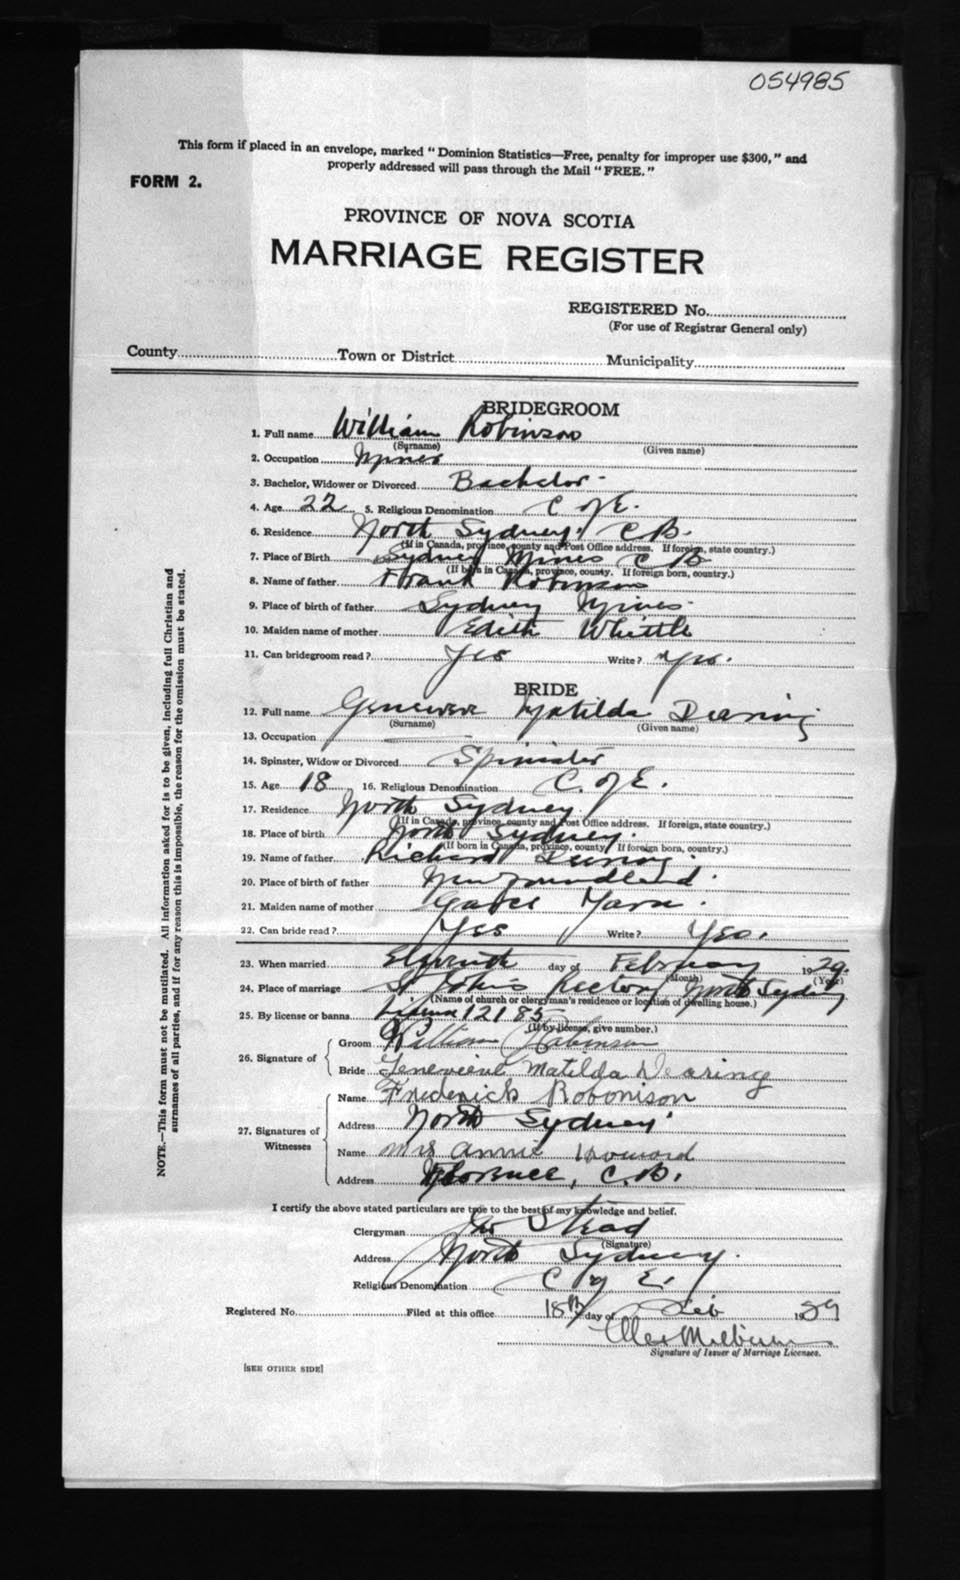 054985
This form if placed in an envelope, marked "Dominion Statistics—Free, penalty for improper use $300," and
properly addressed will pass through the Mail "FREE."
FORM 2.
PROVINCE OF NOVA SCOTIA
MARRIAGE REGISTER
REGISTERED No.
(For use of Registrar General only)
County Town or District Municipality
BRIDEGROOM
1. Full name William Robinson
(Surname) (Given name)
2. Occupation Miner
3. Bachelor, Widower or Divorced Bachelor
4. Age 22 5. Religious Denomination C of E.
6. Residence North Sydney C B.
(If in Canada, province, county and Post Office address. If foreign, state country.)
7. Place of Birth Sydney Mines C B
(If born in Canada, province, county. If foreign born, country.)
8. Name of father Frank Robinson
9. Place of birth of father Sydney Mines
10. Maiden name of mother Edith Whittle
11. Can bridegroom read? Yes Write? Yes.
BRIDE
12. Full name Genevieve Matilda Dearing
(Surname) (Given name)
13. Occupation
14. Spinster, Widow or Divorced Spinster
15. Age 18 16. Religious Denomination C. of E.
17. Residence North Sydney
(If in Canada, province, county and Post Office address. If foreign, state country.)
18. Place of birth North Sydney.
(If born in Canada, province, county. If foreign born, country.)
19. Name of father Richard Dearing
20. Place of birth of father Newfoundland.
21. Maiden name of mother
22. Can bride read? Yes Write? Yes.
23. When married Eleventh day of February 1929.
(Month) (Year)
24. Place of marriage St Johns Rectory North Sydney
(Name of church or clergyman's residence or location of dwelling house.)
25. By license or banns License 12185
(If by license, give number.)
26. Signature of Groom William Robinson
Bride Genevieve Matilda Dearing
27. Signatures of Witnesses Name Frederick Robonison
Address North Sydney
Name Mrs Annie Howard
Address Florence, C.B.
I certify the above stated particulars are true to the best of my knowledge and belief.
Clergyman Stead
(Signature)
Address North Sydney.
Religious Denomination C of E.
Registered No. Filed at this office 18th day of Feb 1929
Signature of Issuer of Marriage Licenses.
[SEE OTHER SIDE]
NOTE.—This form must not be mutilated. All information asked for is to be given, including full Christian and
surnames of all parties, and if for any reason this is impossible, the reason for the omission must be stated.